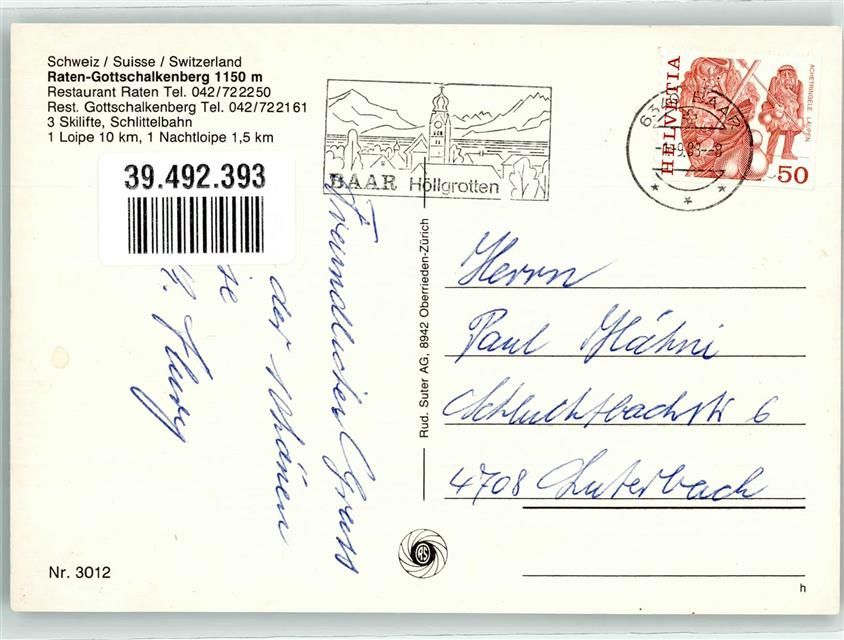 Schweiz / Suisse / Switzerland
Raten-Gottschalkenberg 1150 m
Restaurant Raten Tel. 042/722250
Rest. Gottschalkenberg Tel. 042/722161
3 Skilifte, Schlittelbahn
1 Loipe 10 km, 1 Nachtloipe 1,5 km
39.492.393
BAAR Höllgrotten
BAAR
HELVETIA
ACHETRINGELE LAUPEN
50
Freundlicher Gruss
der schönen
Rud. Suter AG, 8942 Oberrieden-Zürich
Herrn
Paul Hähni
Schluchtbachstr 6
4708 Luterbach
RS
Nr. 3012
h